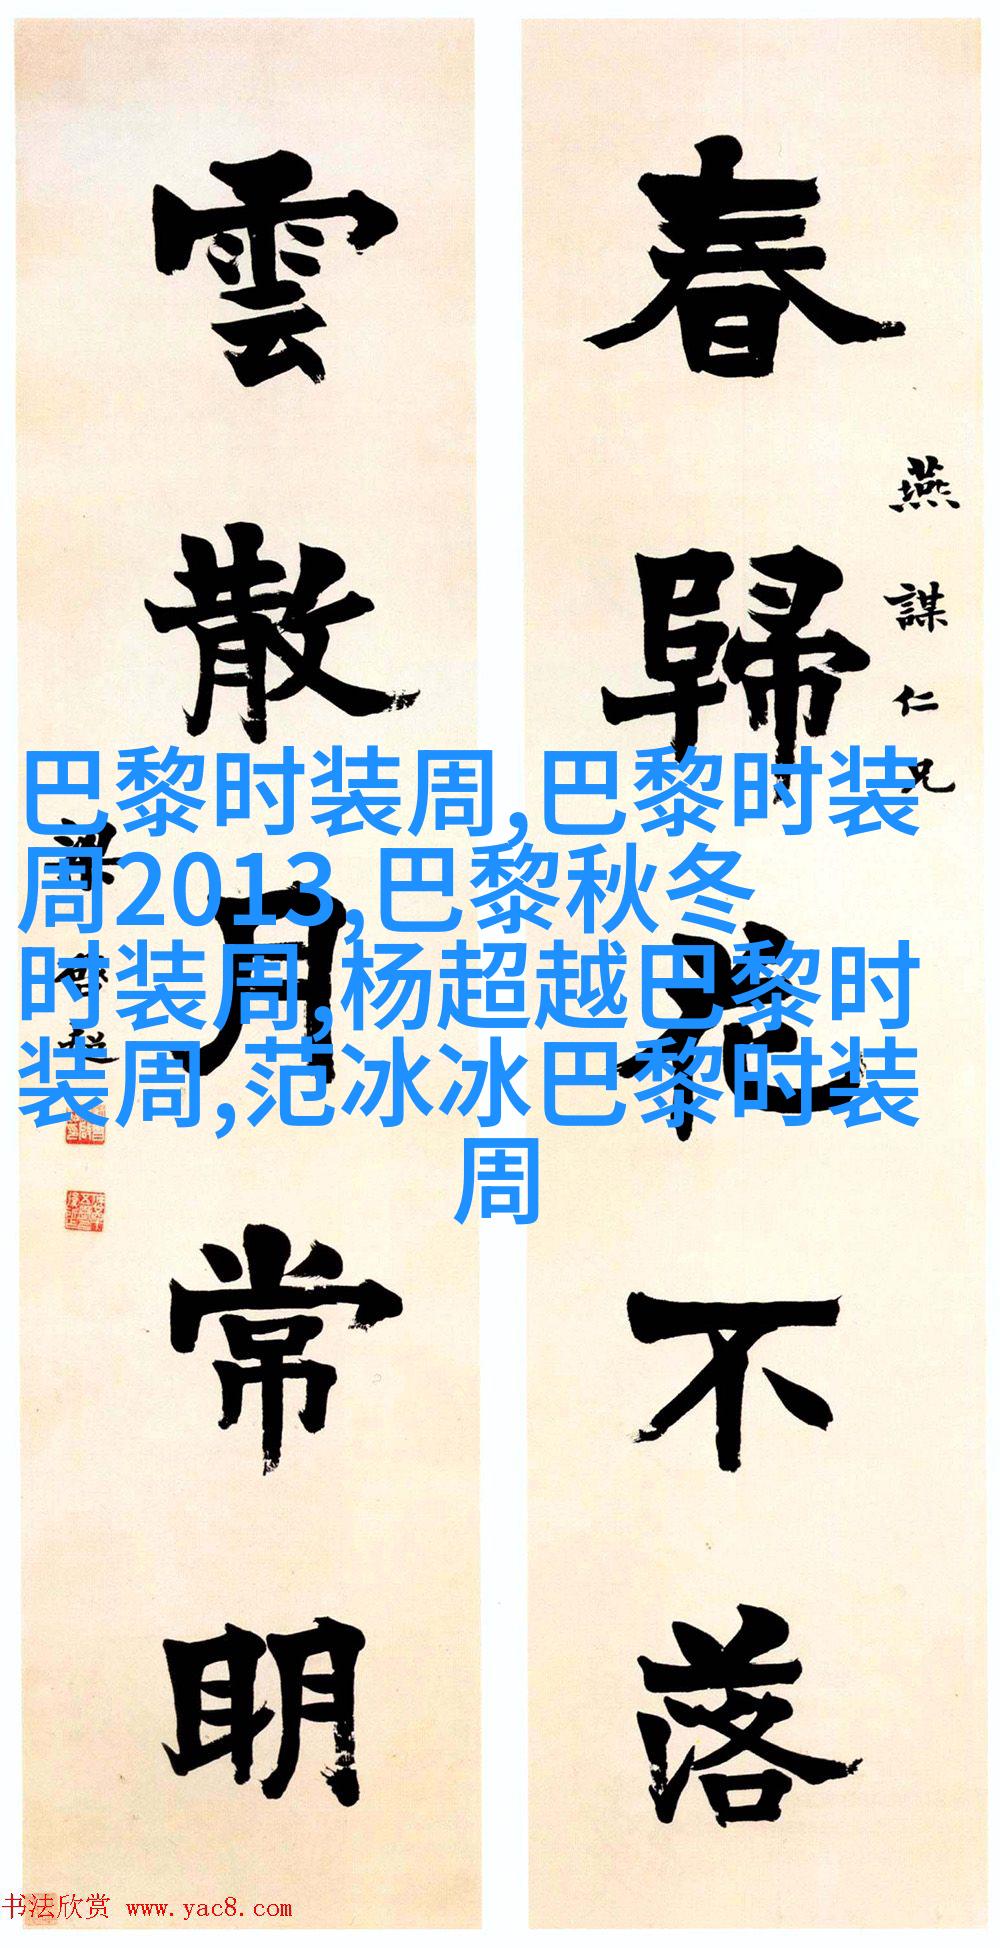 春歸花不落
燕謀仁兄
雲散月常明
梁啓超
巴黎时装周,巴黎时装
周2013,巴黎秋冬
时装周,杨超越巴黎时
装周,范冰冰巴黎时装
周
书法欣赏 www.yac8.com